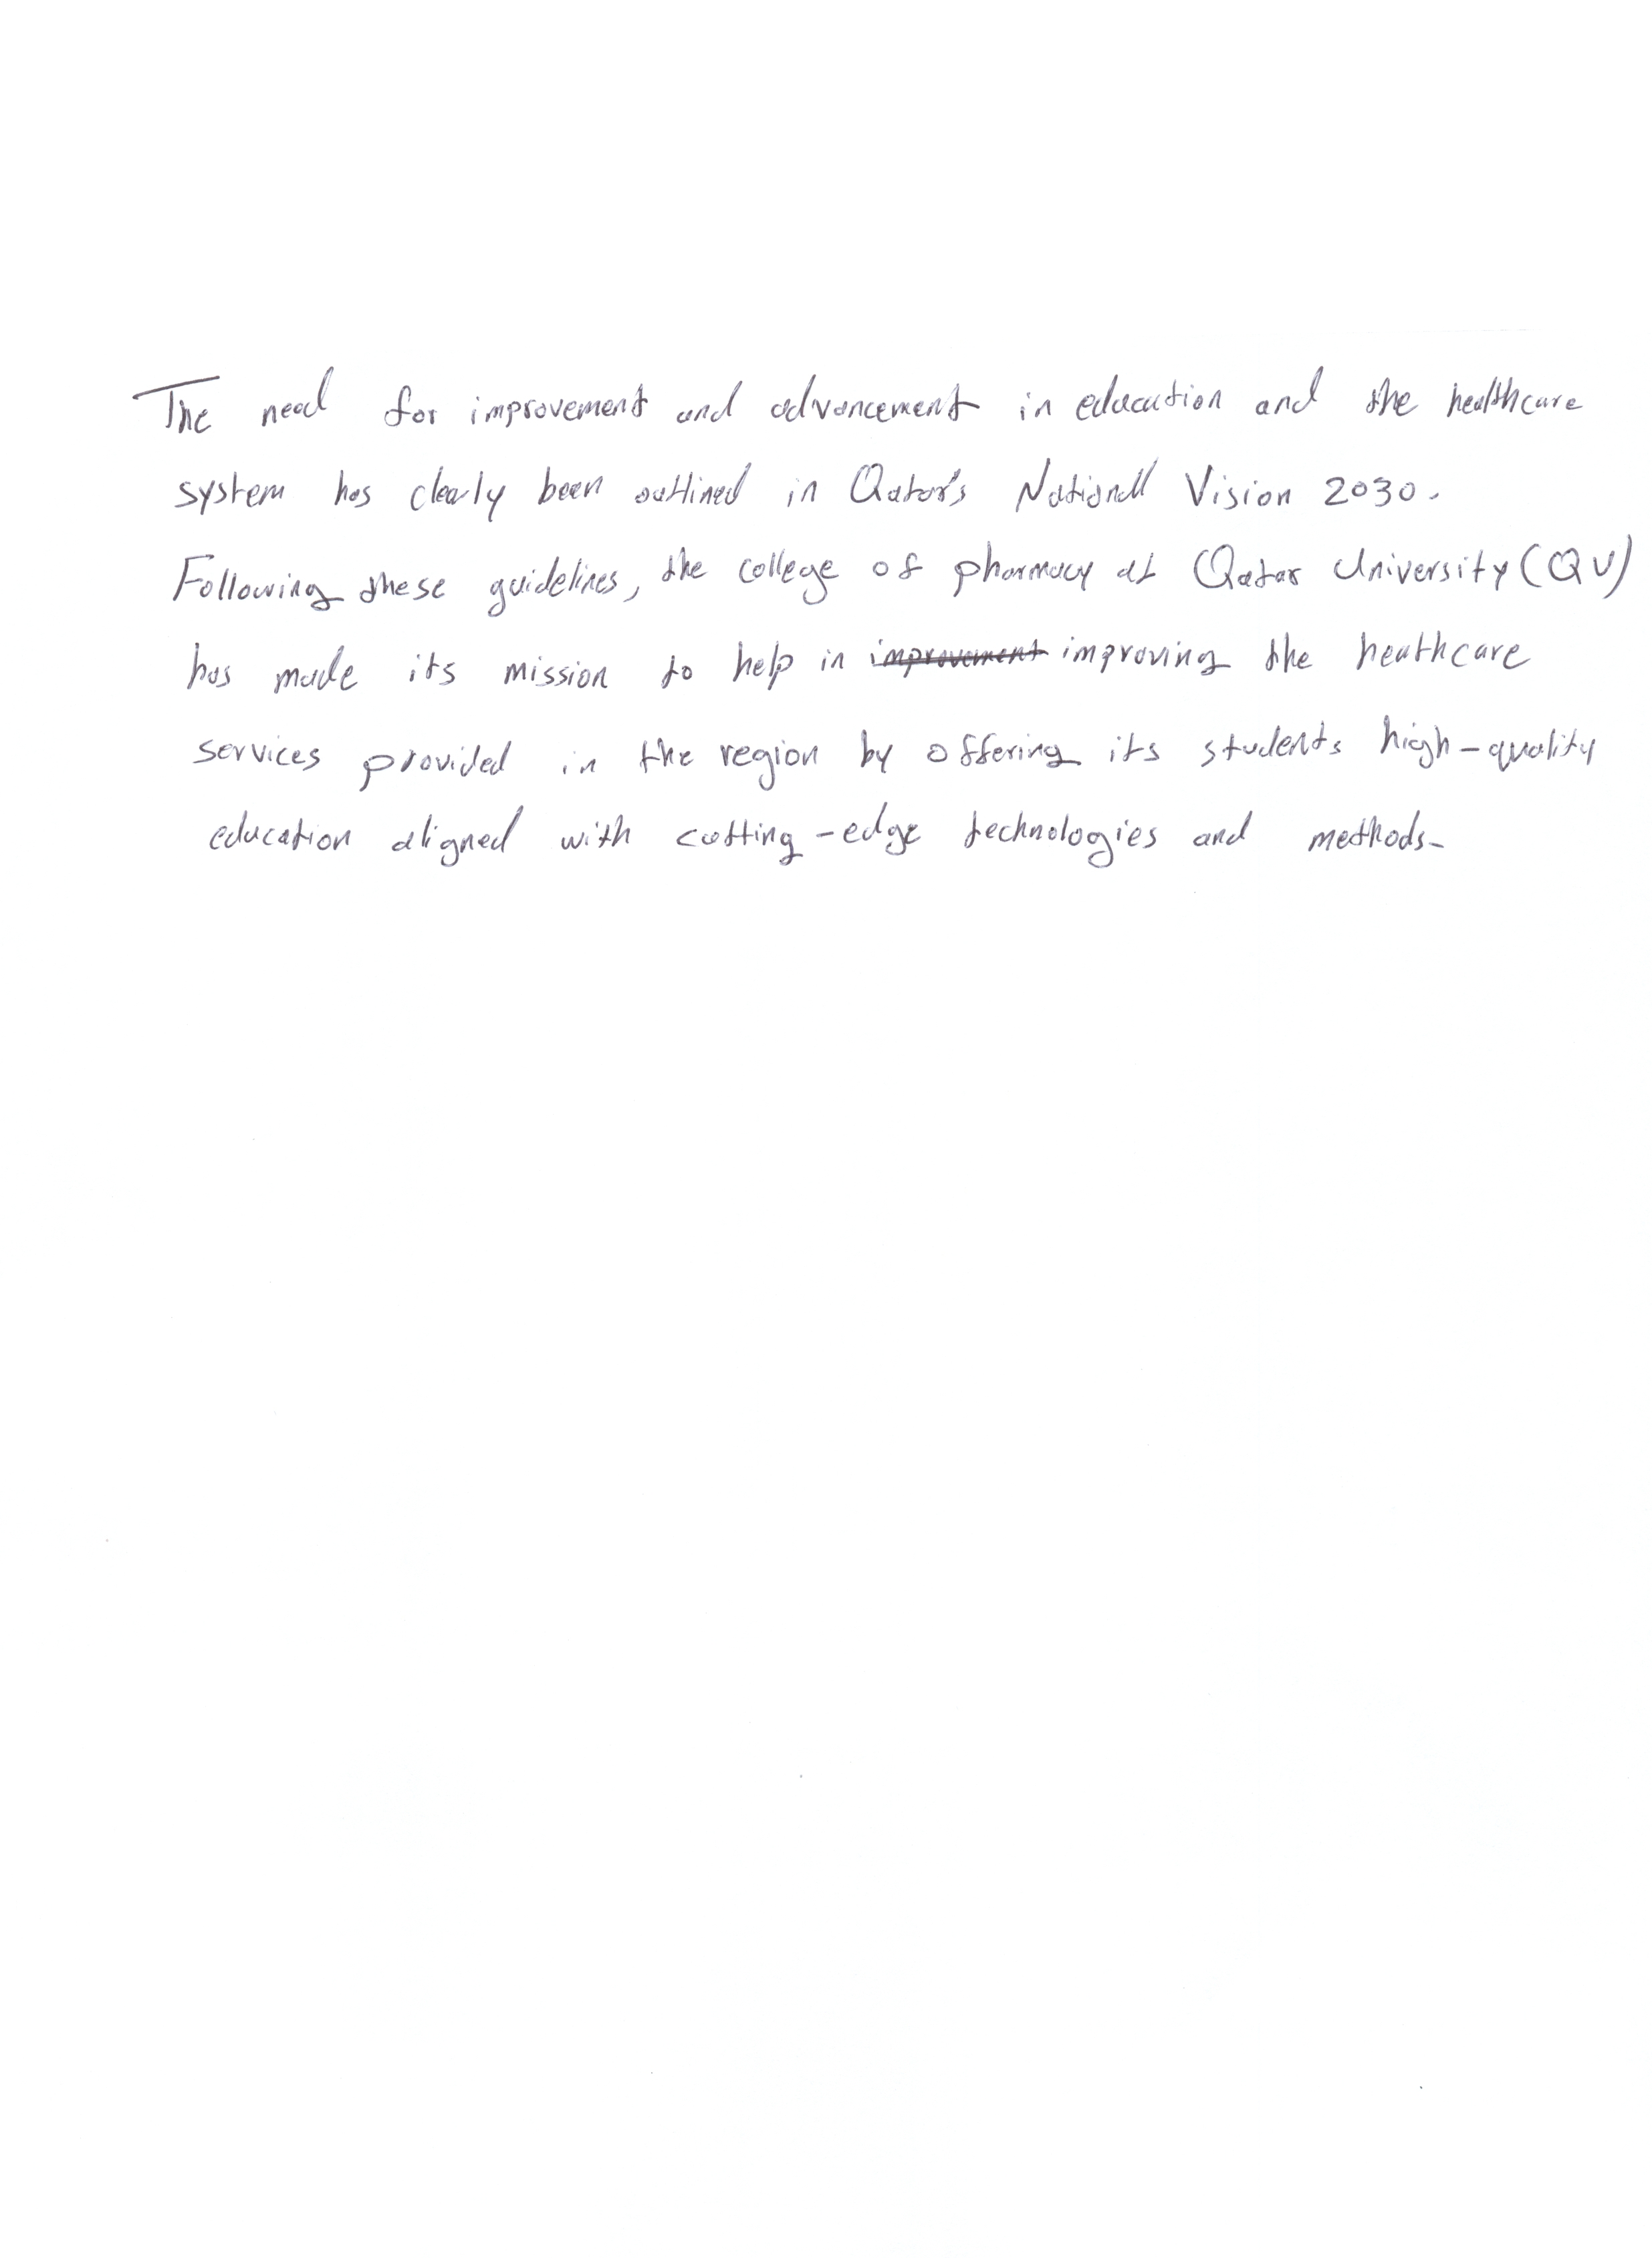 The need for improvement and advancement in education and the healthcare
system has clearly been outlined in Qatar's National Vision 2030.
Following these guidelines, the college of pharmacy at Qatar University (QU)
has made its mission to help in ~~improvement~~ improving the healthcare
services provided in the region by offering its students high-quality
education aligned with cutting-edge technologies and methods.